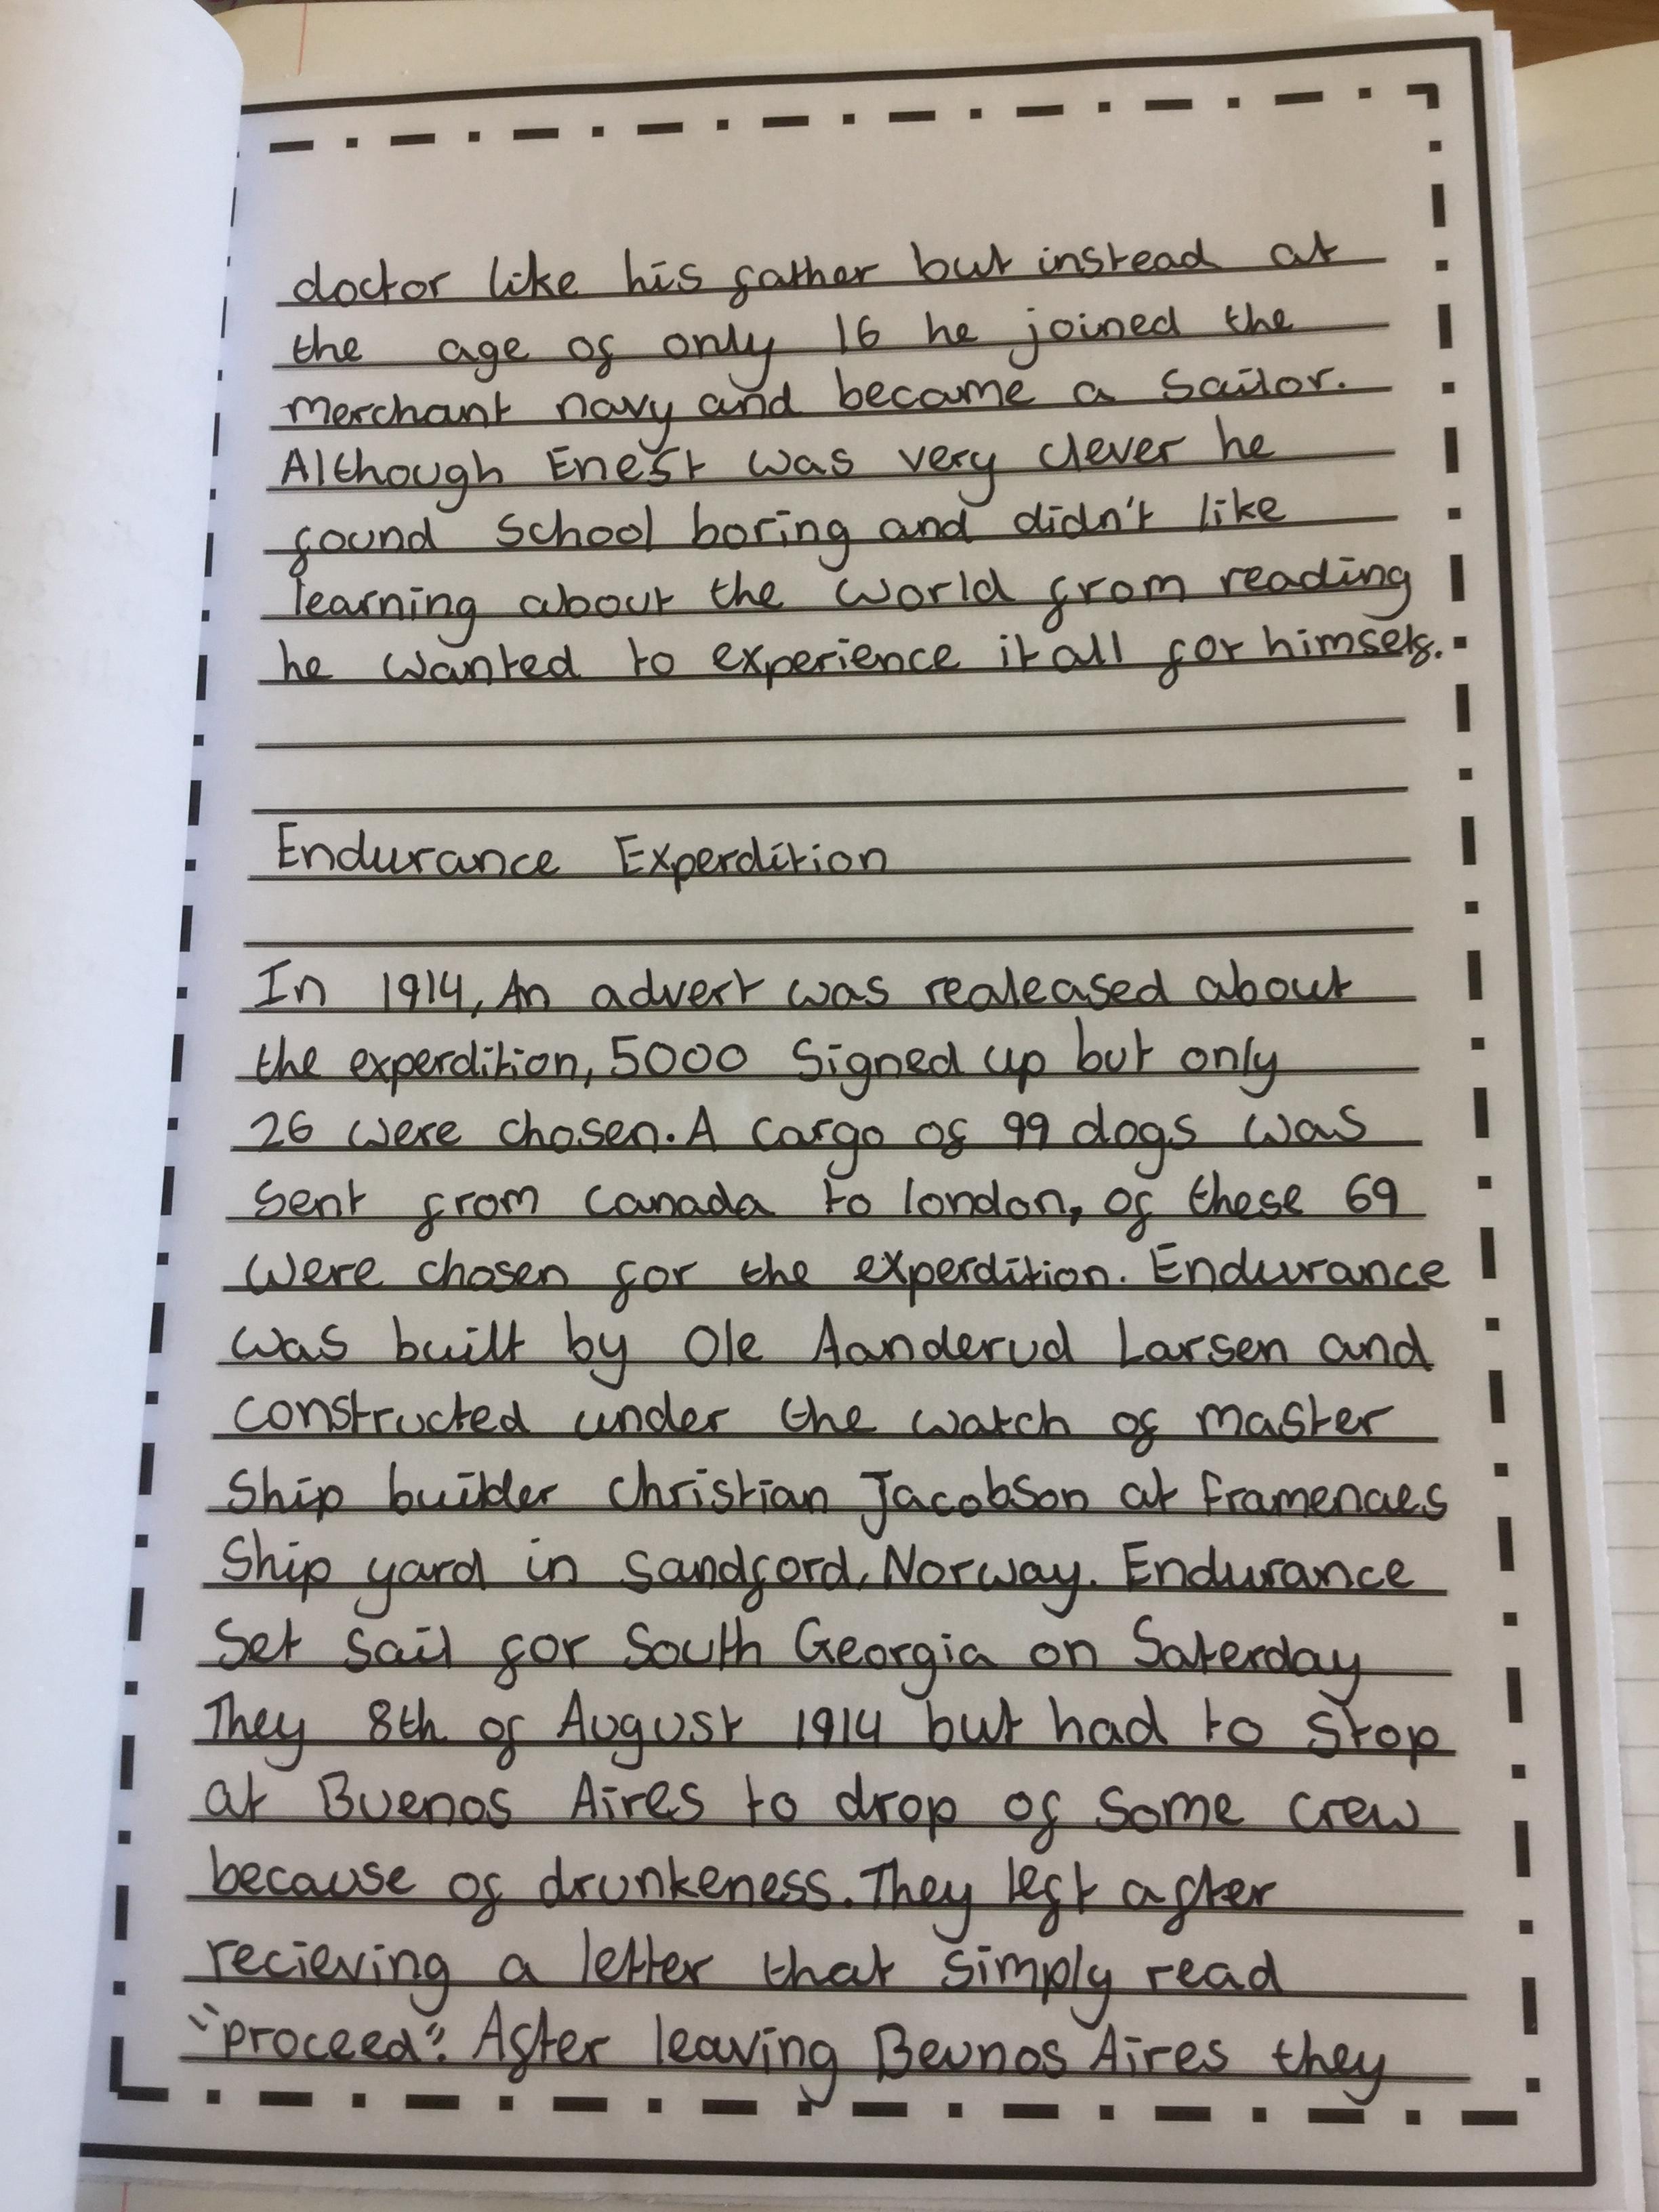 doctor like his father but instead at
the age of only 16 he joined the
merchant navy and became a sailor.
Although Enest was very clever he
found school boring and didn't like
learning about the world from reading
he wanted to experience it all for himself.
Endurance Experdition
In 1914, An advert was realeased about
the experdition, 5000 signed up but only
26 were chosen. A cargo of 99 dogs was
sent from canada to london, of these 69
were chosen for the experdition. Endurance
was built by Ole Aanderud Larsen and
constructed under the watch of master
ship builder christian Jacobson at framenaes
Ship yard in sandford, Norway. Endurance
set sail for South Georgia on Saterday
They 8th of August 1914 but had to stop
at Buenos Aires to drop of some crew
because of drunkeness. They left after
recieving a letter that simply read
"proceed". After leaving Beunos Aires they